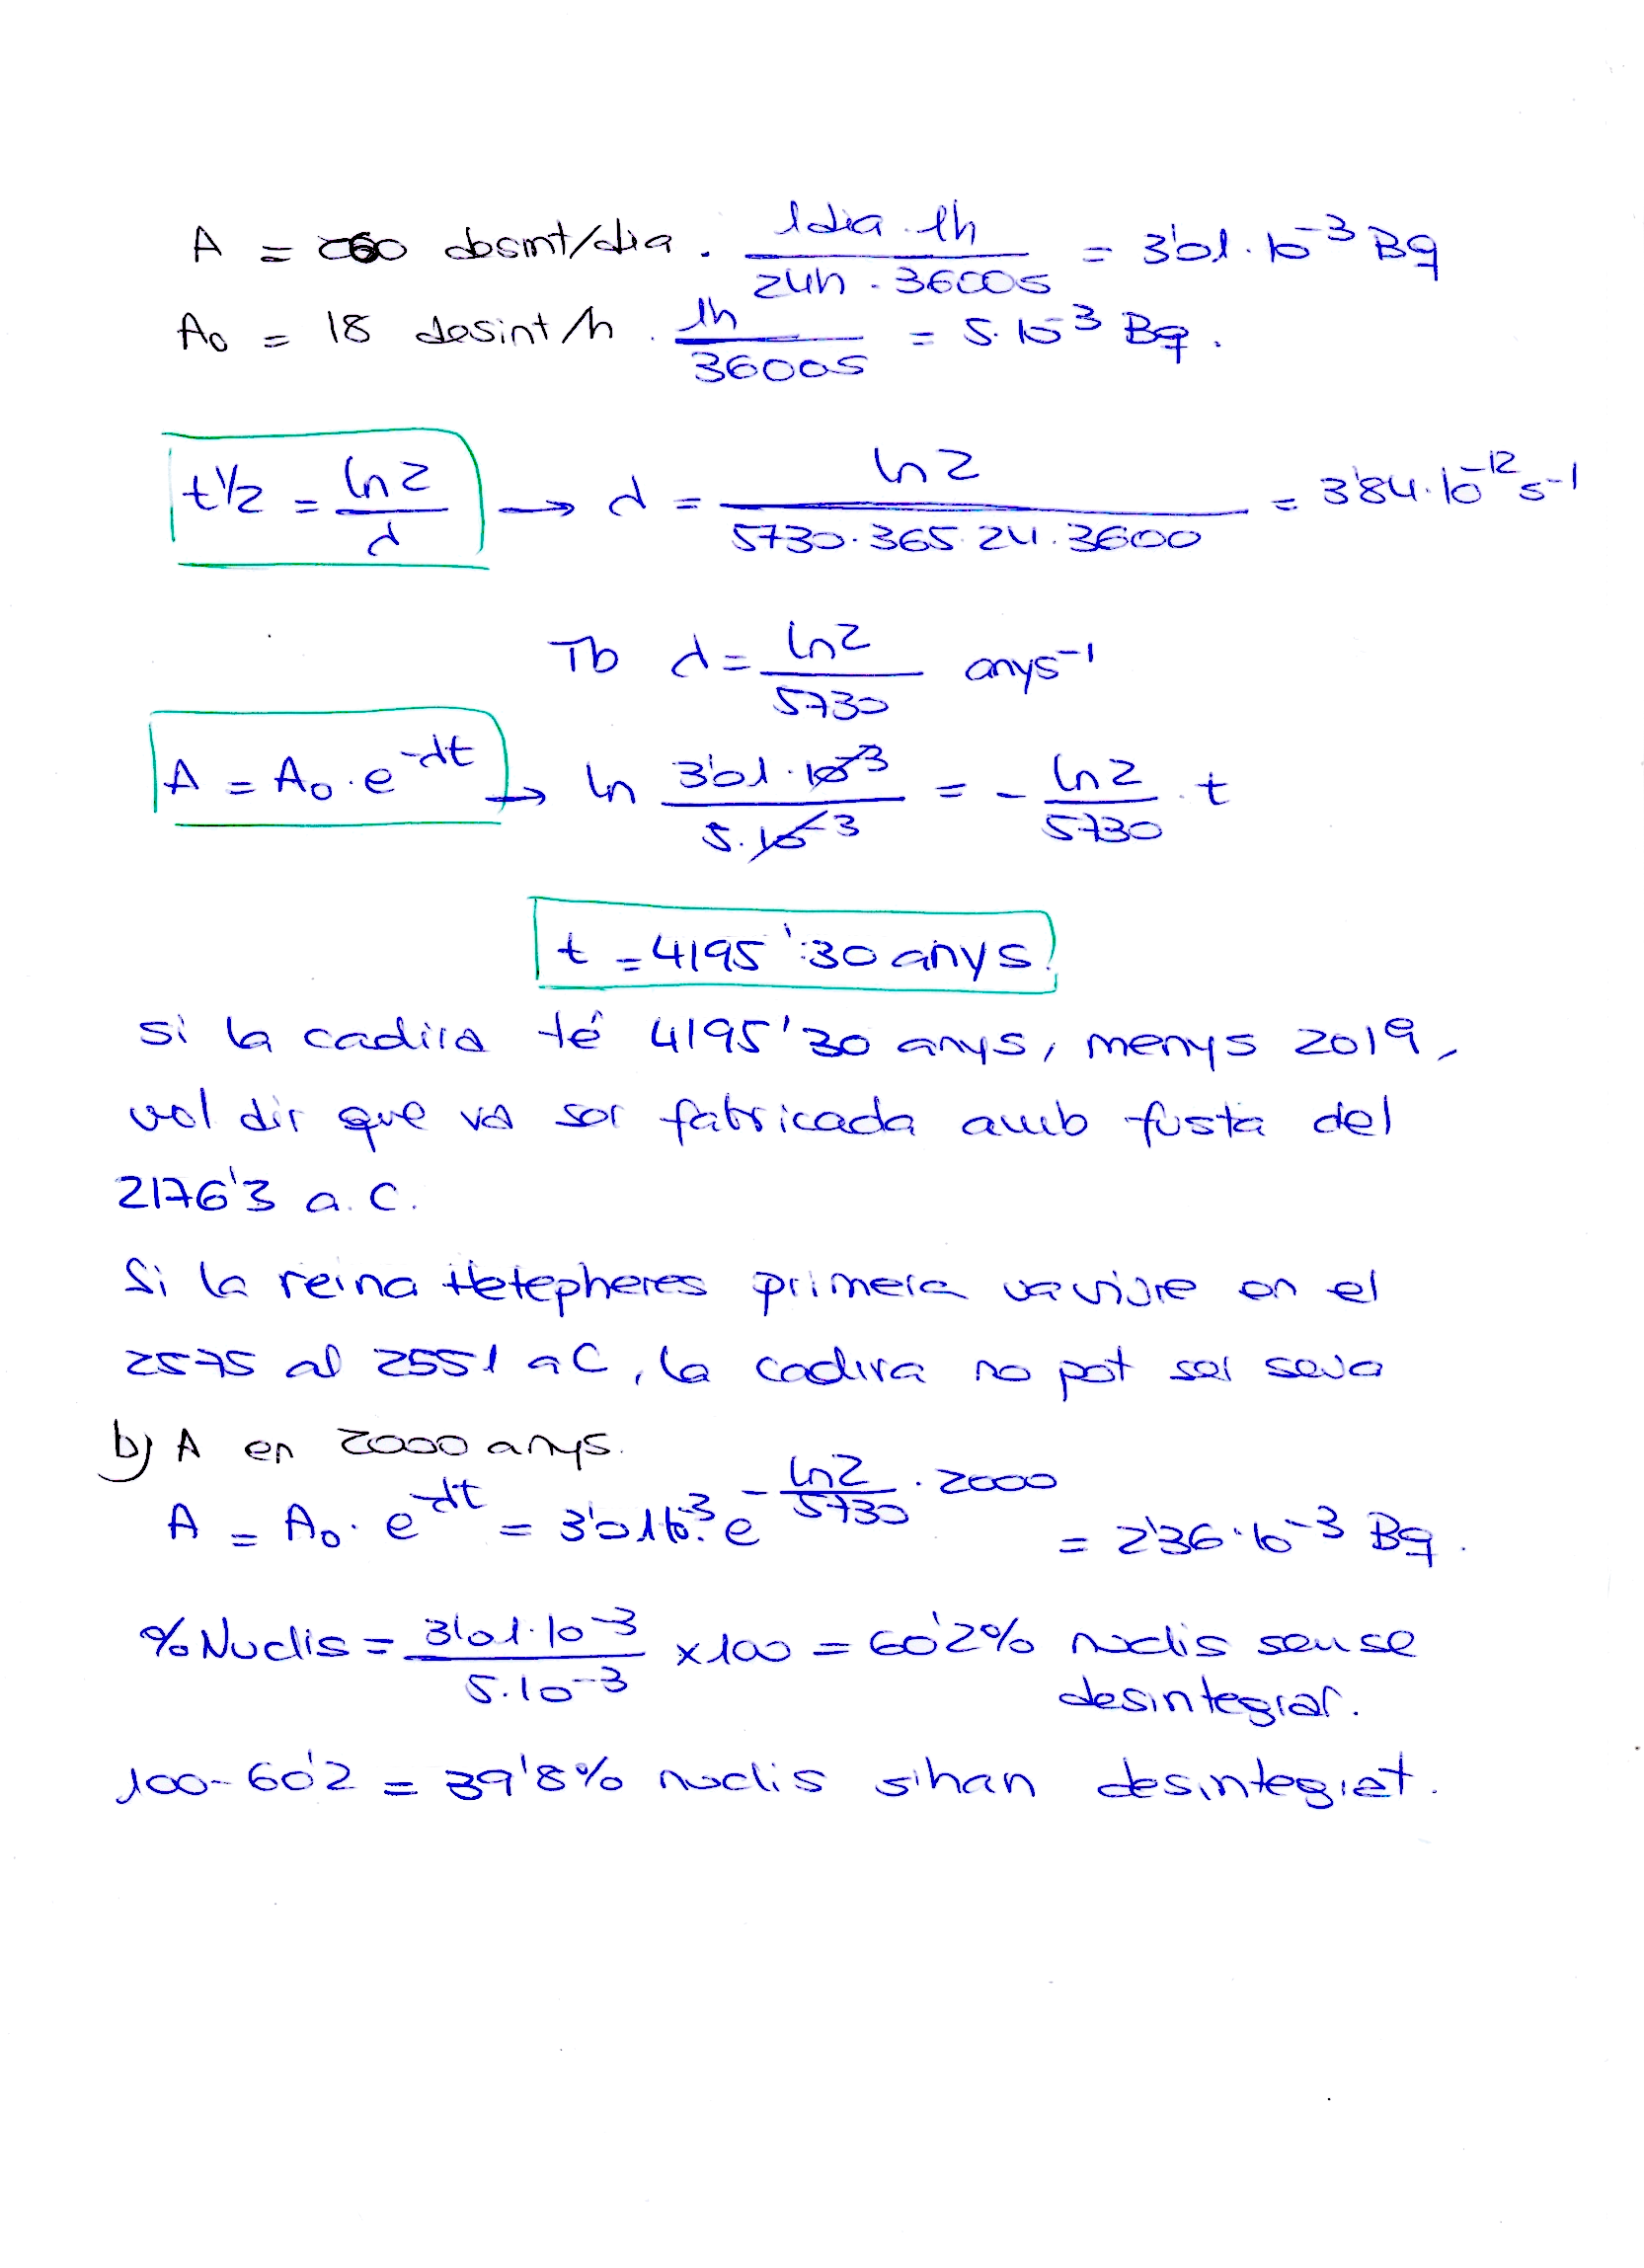 A = 260 desint/dia · 1dia · 1h / 24h · 3600s = 3'01·10⁻³ Bq
A₀ = 18 desint/h · 1h / 3600s = 5·10⁻³ Bq.
t½ = ln2 / λ → λ = ln2 / 5730·365·24·3600 = 3'84·10⁻¹² s⁻¹
Tb λ = ln2 / 5730 anys⁻¹
A = A₀·e^-λt → ln 3'01·10⁻³ / 5·10⁻³ = - ln2 / 5730 · t
t = 4195'30 anys.
Si la cadira té 4195'30 anys, menys 2019,
vol dir que va ser fabricada amb fusta del
2176'3 a.C.
Si la reina Hetepheres primera va viure en el
2575 al 2551 aC, la cadira no pot ser seva
b) A en 2000 anys.
A = A₀·e^-λt = 3'01·10⁻³·e^(- ln2 / 5730 · 2000) = 2'36·10⁻³ Bq.
% Nuclis = 3'01·10⁻³ / 5·10⁻³ x100 = 60'2% nuclis sense
desintegrar.
100-60'2 = 39'8% nuclis s'han desintegrat.